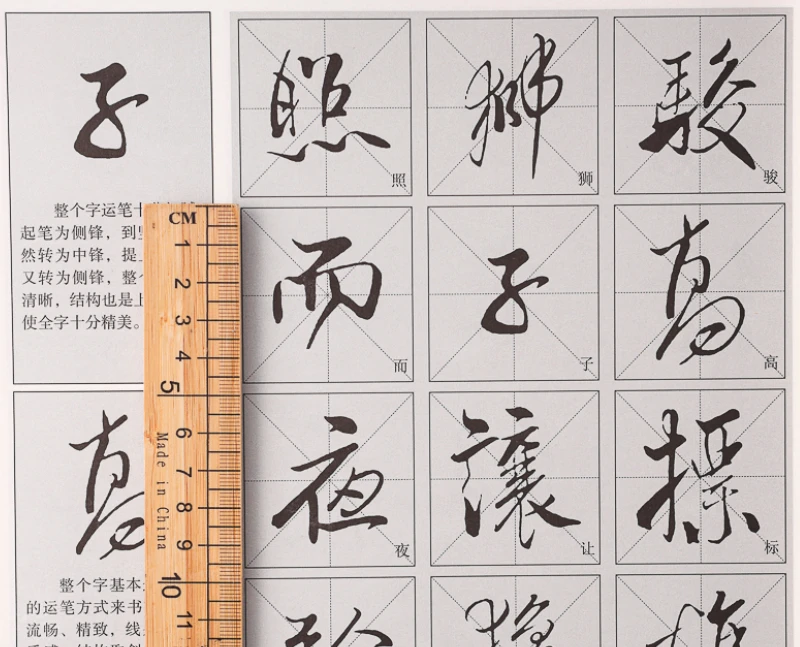 子
整个字运笔十
起笔为侧锋，到
然转为中锋，提
又转为侧锋，整
清晰，结构也是上
使全字十分精美。
高
整个字基本
的运笔方式来书
流畅、精致，线
CM
1
2
3
4
5
6
7
8
9
10
11
Made in China
照 獅 駿
照 狮 骏
而 子 高
而 子 高
夜 讓 標
夜 让 标